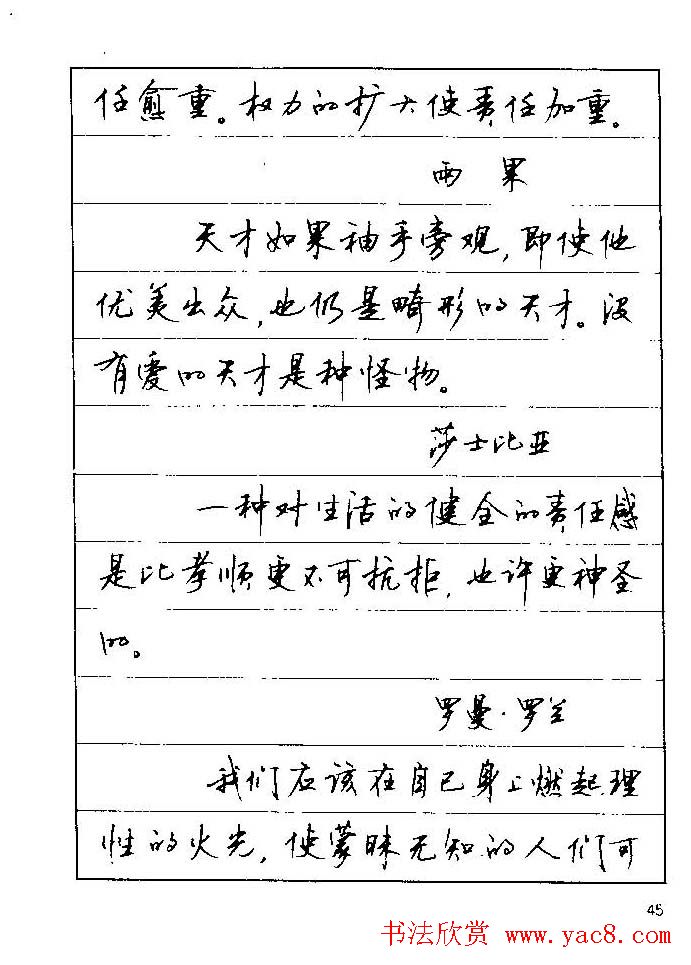 任愈重。权力的扩大使责任加重。
雨果
天才如果袖手旁观,即使他
优美出众,也仍是畸形的天才。没
有爱的天才是种怪物。
莎士比亚
一种对生活的健全的责任感
是比孝顺更不可抗拒,也许更神圣
的。
罗曼·罗兰
我们应该在自己身上燃起理
性的火光,使蒙昧无知的人们可
45
书法欣赏 www.yac8.com